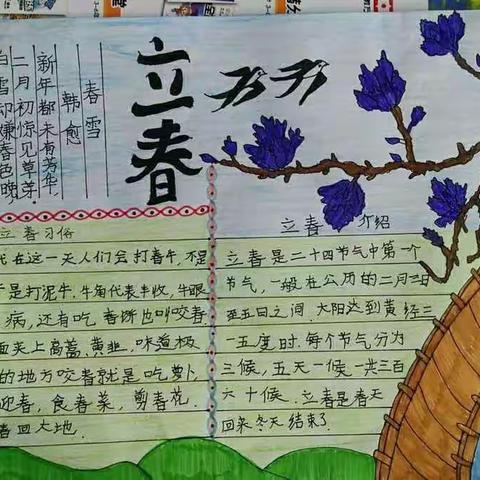 立春
春雪
韩愈
新年都未有芳华，
二月初惊见草芽。
白雪却嫌春色晚
立春习俗
代在这一天人们会打春牛，不是
是打泥牛．牛角代表丰收，牛眼
病，还有吃春饼也叫咬春
面夹上高蒿，黄韭，味道极
的地方咬春就是吃萝卜，
迎春，食春菜，剪春花．
春回大地．
立春 介绍
立春是二十四节气中第一个
节气，一般在公历的二月三日
至五日之间 太阳达到黄经三
一五度时．每个节气分为
三候，五天一候 一共三百
六十候．立春是春天
回来冬天结束了．